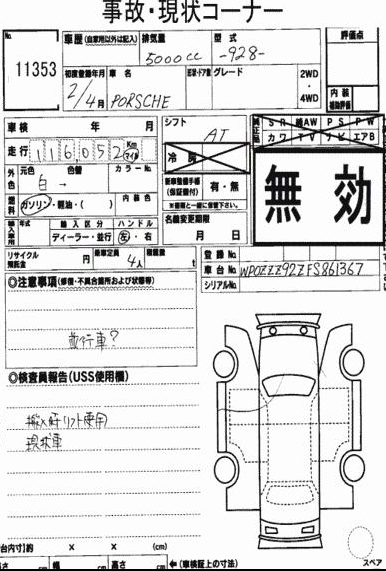 事故・現状コーナー
No.
11353
車歴 (自家用以外は記入)
排気量
型式
5000cc
-928-
評価点
初度登録年月
車名
形状・ドア数
グレード
2WD
・
4WD
2/4月
PORSCHE
内装
補助評価
車検 年 月
シフト
AT
純正品
SR 革AW PS PW
カワ TV ナビ エアB
走行
116,052 Km マイル
冷房
外色
元色 色替
カラーNo.
白 →
新車整備手帳
(保証書付)
有・無
※書類と一緒に保管下さい。
無効
燃料
ガソリン・軽油・( )
内装色
名義変更期限
月 日
輸入車用
年式
輸入区分
ハンドル
ディーラー・並行
左・右
リサイクル
預託金
円
乗車定員
4人
積載量
t
登録No.
車台No.
WP0ZZZ92ZFS861367
シリアルNo.
◎注意事項(修復・不具合箇所および状態等)
並行車?
◎検査員報告(USS使用欄)
搬入時リフト使用
現状車
台内寸)約 × × (cm)
高さ
(cm)
←(車検証上の寸法)
スペア